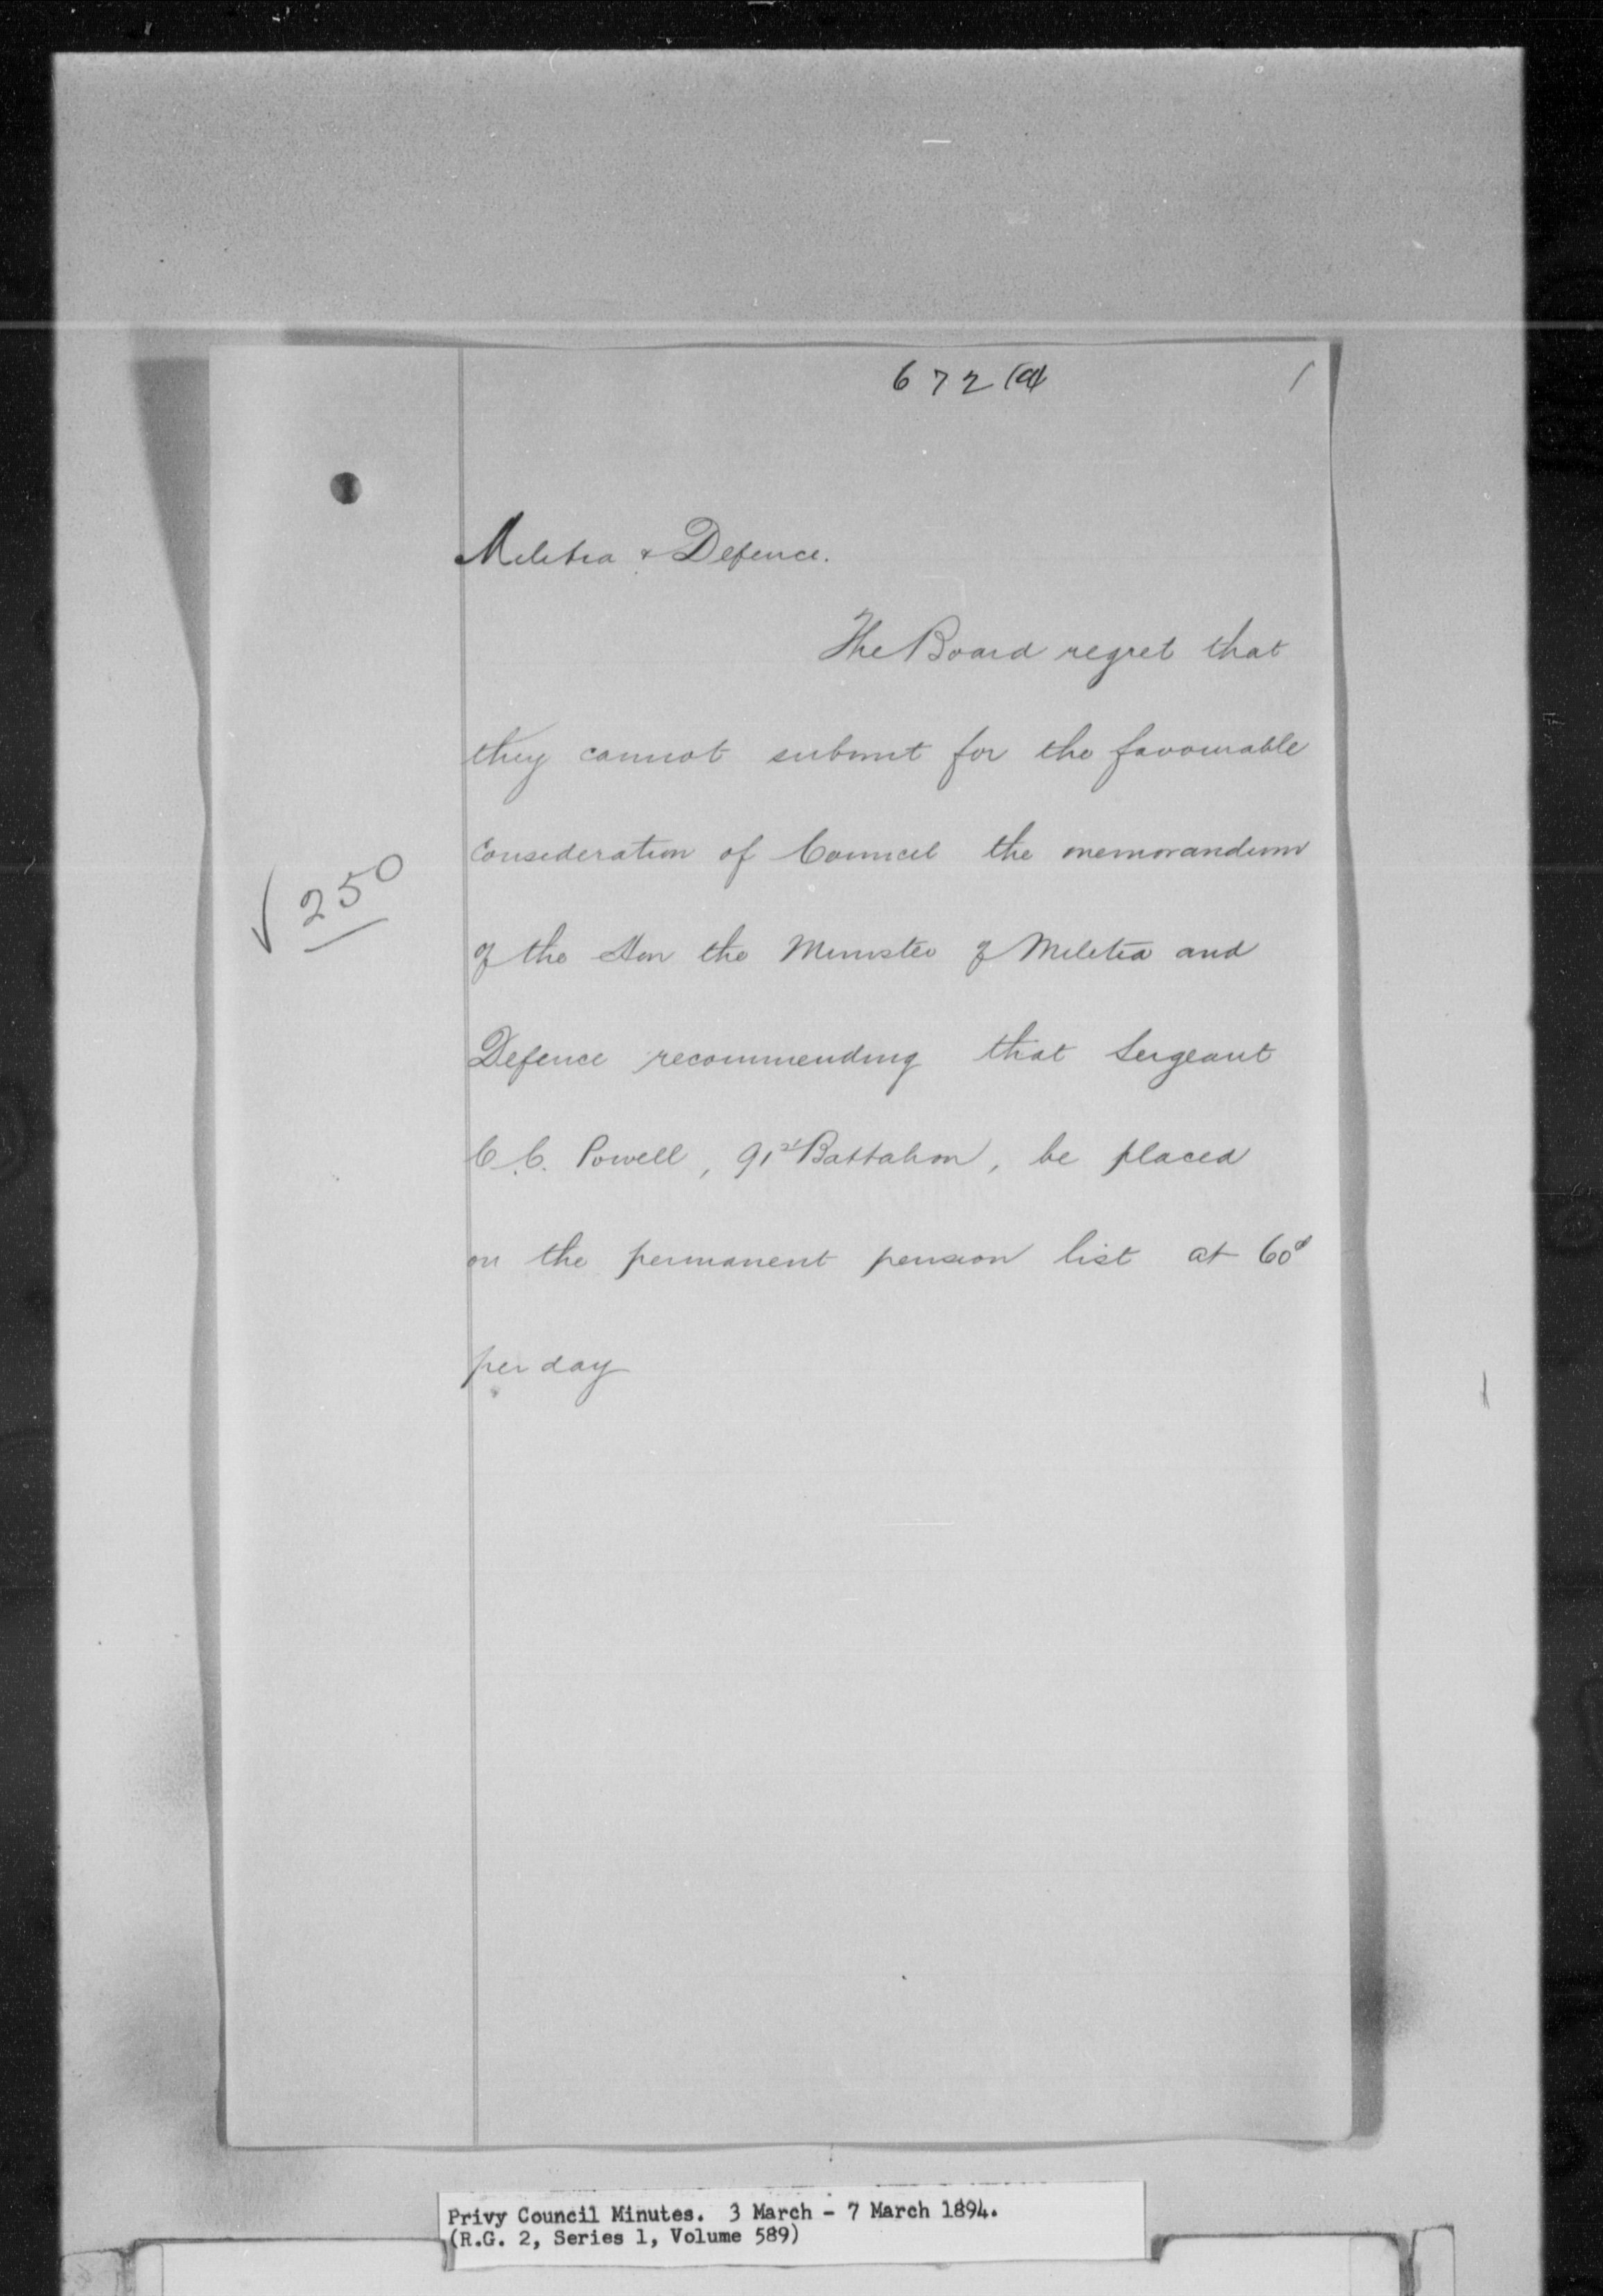 672 (a)
Militia & Defence.
The Board regret that
they cannot submit for the favourable
consideration of Council the memorandum
✓ 250
of the Hon the Minister of Militia and
Defence recommending that Sergeant
C. C. Powell, 91st Battalion, be placed
on the permanent pension list at 60¢
per day
Privy Council Minutes. 3 March - 7 March 1894.
(R.G. 2, Series 1, Volume 589)